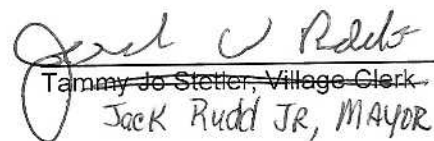 Tammy Jo Stetler, Village Clerk
Jack Rudd JR, MAYOR